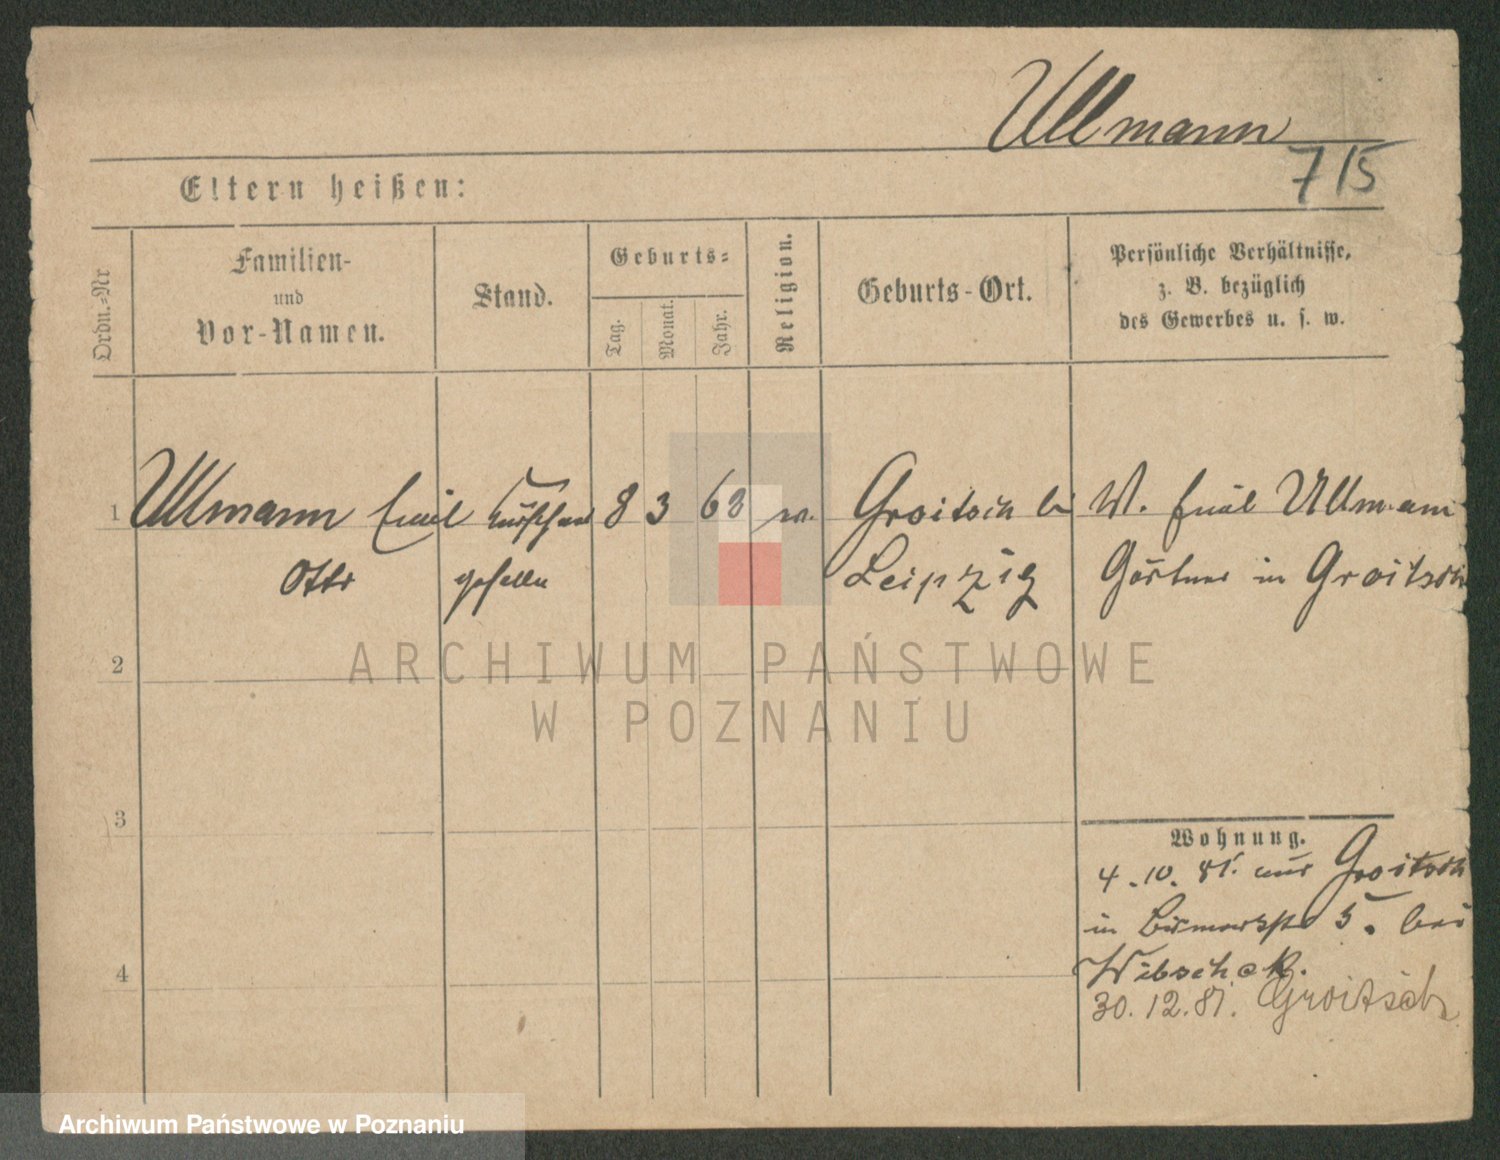 Ullmann
715
Eltern heißen:
Ordn.-Nr
Familien-
und
Vor-Namen.
Stand.
Geburts-
Tag.
Monat.
Jahr.
Religion.
Geburts-Ort.
Persönliche Verhältnisse,
z. B. bezüglich
des Gewerbes u. s. w.
1 Ullmann Emil 8 3 63 Groitsch bei W. Emil Ullmann
Otto geselle Leipzig Gärtner in Groitsch
2
3
4
Wohnung.
4.10.81. aus Groitsch
in Bismarckstr 5. bei
30.12.81. Groitsch
ARCHIWUM PAŃSTWOWE
W POZNANIU
Archiwum Państwowe w Poznaniu